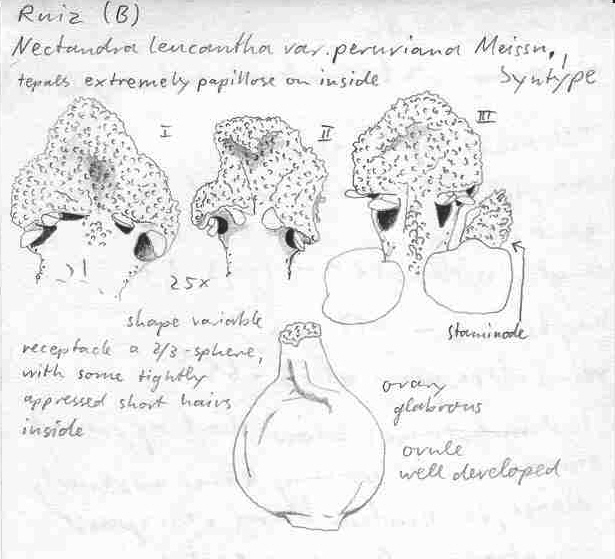 Ruiz (B)
Nectandra leucantha var. peruviana Meissn.,
Syntype
tepals extremely papillose on inside
I
II
III
25x
staminode
shape variable
receptacle a 2/3-sphere,
with some tightly
appressed short hairs
inside
ovary
glabrous
ovule
well developed